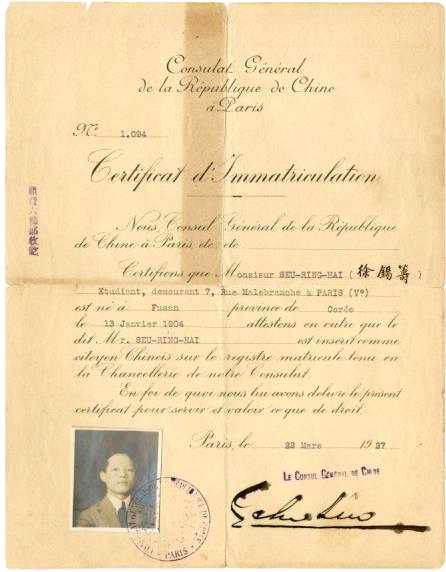 Consulat Général
de la République de Chine
à Paris
No. 1.094
Certificat d'Immatriculation
Nous, Consul Général de la République
de Chine à Paris, de de
Certifions que Monsieur SEU-RING-HAI (徐錫籌)
Etudiant, demeurant 7, Rue Malebranche à PARIS (Ve)
est né à Fusan province de Corée
le 13 Janvier 1904 attestons en outre que le
dit Mr. SEU-RING-HAI est inscrit comme
citoyen Chinois sur le registre matricule tenu en
la Chancellerie de notre Consulat.
En foi de quoi nous lui avons délivré le présent
certificat pour servir et valoir ce que de droit.
Paris, le 22 Mars 1927
LE CONSUL GÉNÉRAL DE CHINE
PARIS